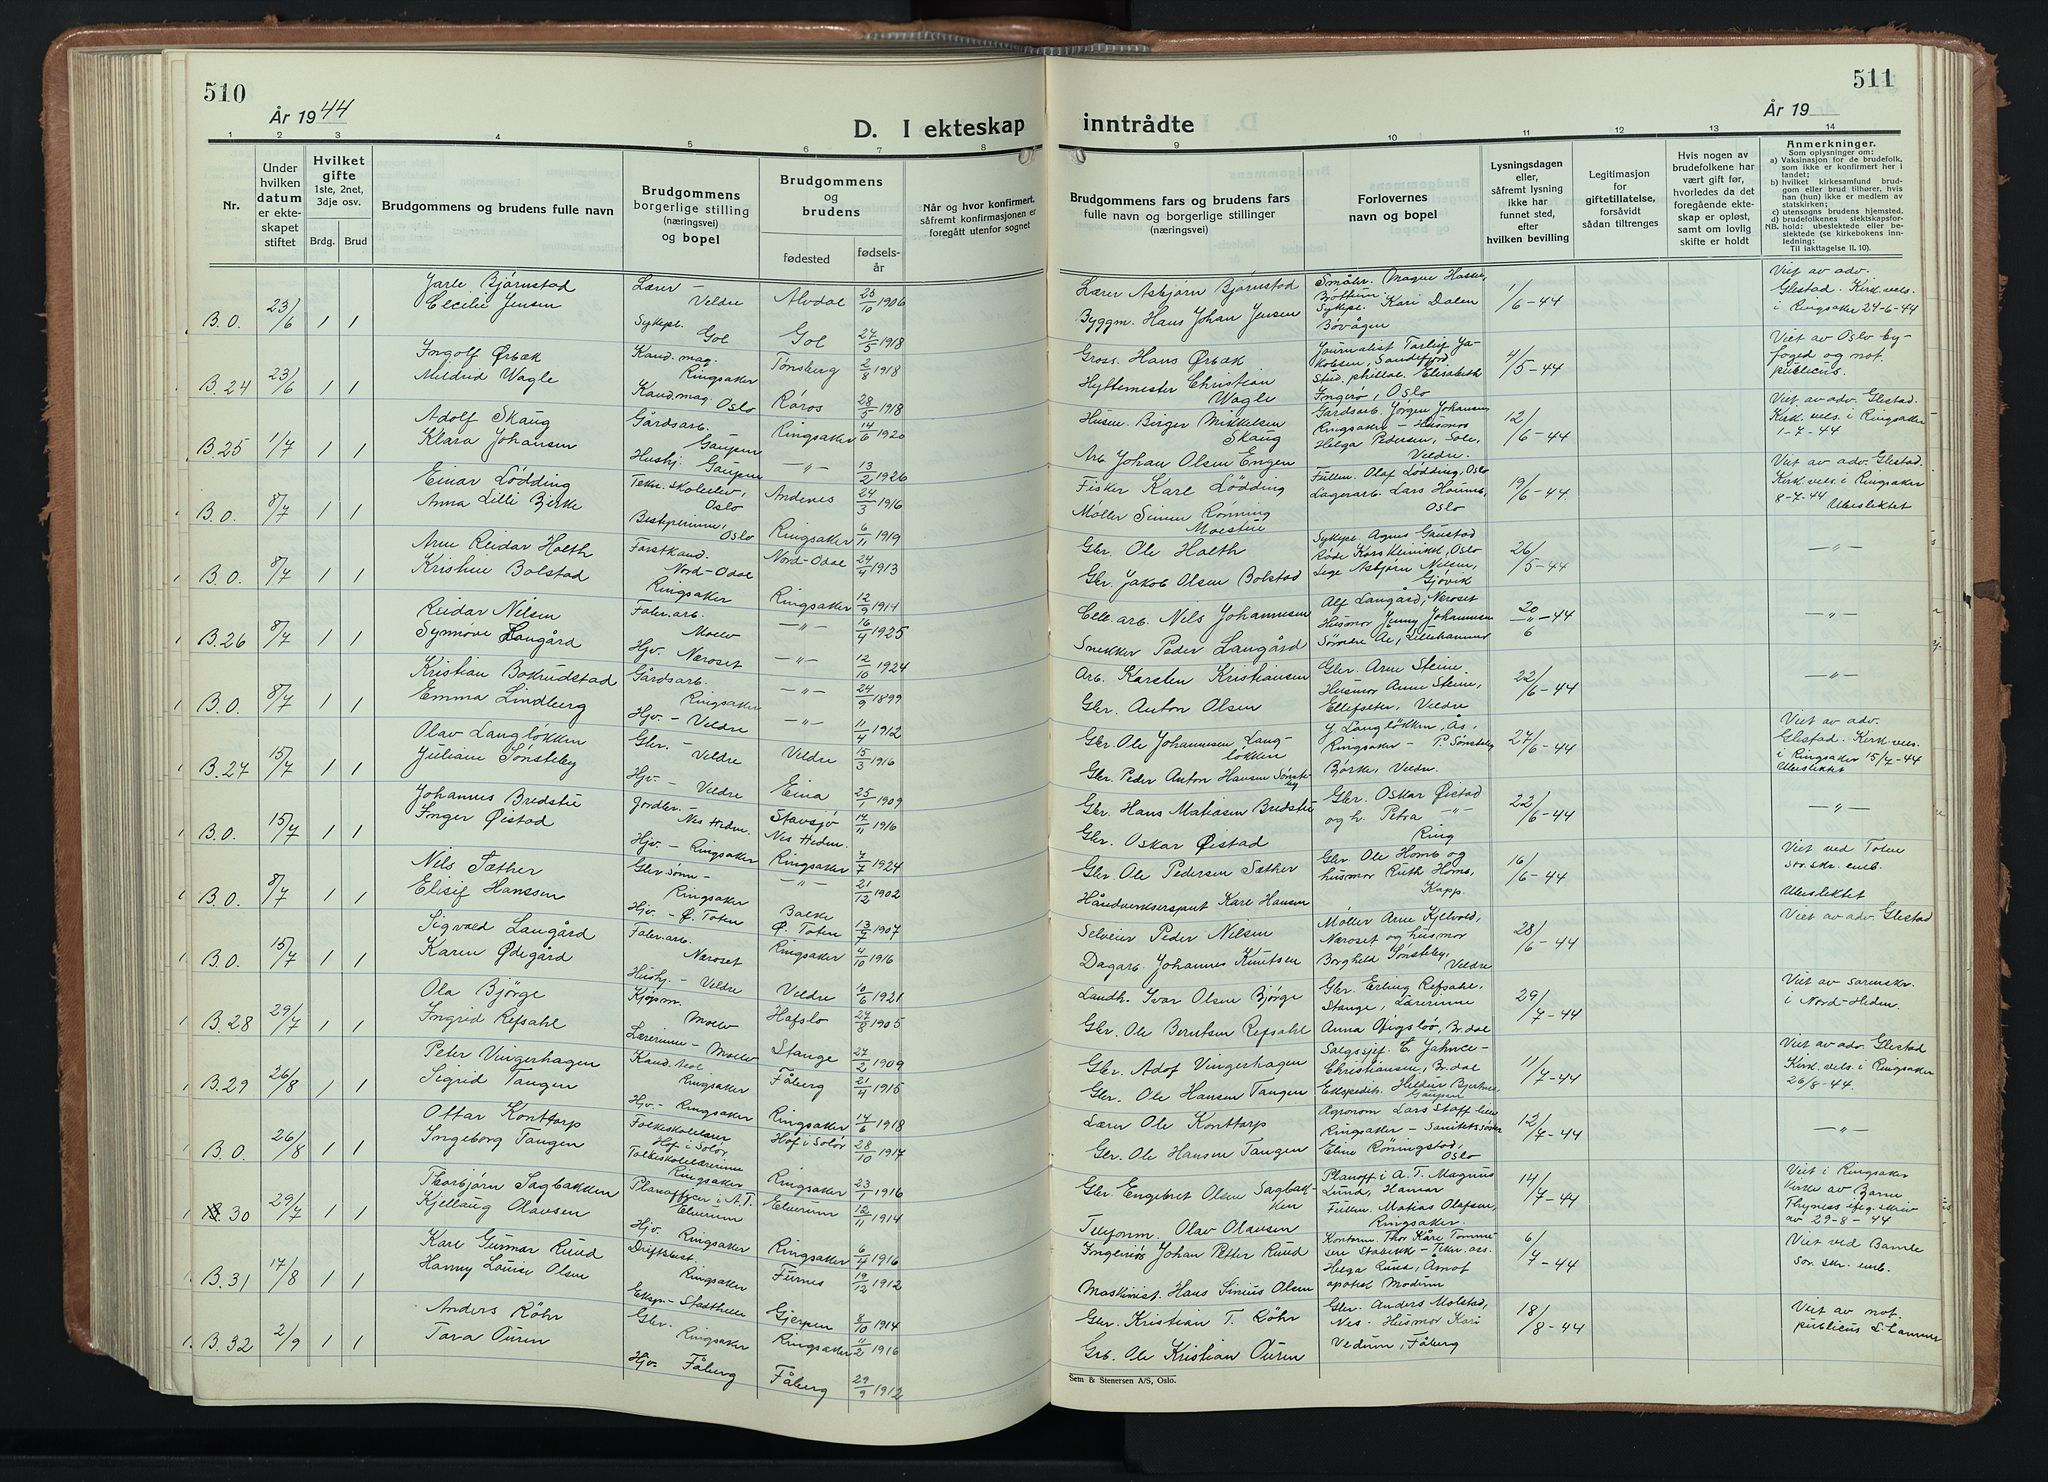 510
År 1944
D. I ekteskap
1 2 3 4 5 6 7 8
Nr.
Under hvilken datum er ekteskapet stiftet
Hvilket gifte 1ste, 2net, 3dje osv.
Brdg. Brud
Brudgommens og brudens fulle navn
Brudgommens borgerlige stilling (næringsvei) og bopel
Brudgommens og brudens
fødested fødselsår
Når og hvor konfirmert, såfremt konfirmasjonen er foregått utenfor sognet
B.O. 23/6 1 1 Jarle Bjørnstad Lærer - Veldre Alvdal 25/10 1906
Cecilie Jensen Sykepl. Gol Gol 27/5 1918
B.24 23/6 1 1 Ingolf Ørbæk Kand. mag. Ringsaker Tønsberg 2/8 1918
Meldrid Wagle Kand. mag. Oslo Røros 28/5 1918
B.25 1/7 1 1 Adolf Skaug Gårdsarb. Gaupen Ringsaker 14/6 1920
Klara Johansen Hushj. Gaupen -"- 13/2 1926
B.O. 8/7 1 1 Einar Lødding Tekn. skoleelev, Oslo Andenes 24/3 1916
Anna Lilli Bjerke Bestyrerinne, Oslo Ringsaker 6/11 1919
B.O. 8/7 1 1 Arne Reidar Holth Forstkand. Nord-Odal Nord-Odal 24/4 1913
Kristine Bolstad Ringsaker Ringsaker 12/9 1914
B.26 8/7 1 1 Reidar Nilsen Faler. arb. Moelv -"- 16/4 1925
Synnøve Langård Hjv. Næroset -"- 12/10 1924
B.O. 8/7 1 1 Kristian Bokrudstad Gårdsarb. Ringsaker -"- 24/9 1899
Emma Lindberg Hjv. - Veldre -"- 11/4 1912
B.27 15/7 1 1 Olav Langløkken Gbr. - Veldre Veldre 15/3 1916
Juliane Sønsteby Hjv - Veldre Eina 25/1 1909
B.O. 15/7 1 1 Johannes Bredstie Jordbr. - Nes Hedm. Stavsjø Nes Hedm. 17/11 1916
Inger Øistad Hjv - Ringsaker Ringsaker 7/7 1924
B.O. 8/7 1 1 Nils Sæther Gbr sønn - Ringsaker -"- 21/12 1902
Elisif Hanssen Hjv. - Ø. Toten Balke Ø. Toten 13/7 1907
B.O. 15/7 1 1 Sigvald Langård Faler. arb. Næroset Ringsaker 4/10 1916
Karen Ødegård Hushj - Veldre Veldre 10/6 1921
B.28 29/7 1 1 Ola Bjørge Kjøpm. Moelv Hafslo 27/8 1905
Ingrid Refsahl Lærerinne - Moelv Stange 27/2 1909
B.29 26/8 1 1 Peter Vingerhagen Kand. teol. Ringsaker Fåberg 21/4 1915
Sigrid Tangen Hjv. - Ringsaker Ringsaker 14/6 1918
B.O. 26/8 1 1 Ottar Konttorp Folkeskolelærer Hof i Solør Hof i Solør 28/10 1917
Ingeborg Tangen Folkeskolelærerinne Ringsaker Ringsaker 23/1 1916
30 29/7 1 1 Thorbjørn Sagbakken Planoffiser i A.T. Elverum Elverum 12/11 1914
Kjellaug Olavsen Hjv. Ringsaker Ringsaker 6/4 1916
B.31 17/8 1 1 Karl Gunnar Ruud Driftsbest. Ringsaker Furnes 19/12 1912
Hanny Louise Olsen Eksp. - Stadthelle Gjerpen 8/10 1914
B.32 2/9 1 1 Anders Röhr Gbr. Ringsaker Ringsaker 11/2 1916
Tora Ouren Hjv. Fåberg Fåberg 29/9 1912
511
År 19
inntrådte
9 10 11 12 13 14
Brudgommens fars og brudens fars fulle navn og borgerlige stillinger (næringsvei)
Forlovernes navn og bopel
Lysningsdagen eller, såfremt lysning ikke har funnet sted, efter hvilken bevilling
Legitimasjon for giftetillatelse, forsåvidt sådan tiltrenges
Hvis nogen av brudefolkene har vært gift før, hvorledes da det foregående ekteskap er opløst, samt om lovlig skifte er holdt
Anmerkninger.
Som oplysninger om:
a) Vaksinasjon for de brudefolk, som ikke er konfirmert her i landet;
b) hvilket kirkesamfund brudgom eller brud tilhører, hvis han (hun) ikke er medlem av statskirken;
c) utensogns brudens hjemsted.
d) brudefolkenes slektskapsforhold: ubeslektede eller beslektede (se kirkebokens innledning:
NB. Til iakttagelse II. 10).
Lærer Asbjørn Bjørnstad
Byggm. Hans Johan Jensen
Småbr. Magne Kari Dalen Bøvågen 1/6-44
Viet av adv. Glestad. Kirk. vels. i Ringsaker 24-6-44
Gross. Hans Ørbæk
Hyttemester Christian Wagle
Journalist Torleif Jakobsen, Sandefjord Stud. philol. Elisabeth Oslo 4/5-44
Viet av Oslo byfoged og not. publicus.
Husm. Birger Mikkelsen Skaug
Arb. Johan Olsen Engen
Gårdsarb. Jørgen Johansen Ringsaker - Husmor Helga Pedersen, Sole, Veldre. 12/6-44
Viet av adv. Glestad. Kirk. vels. i Ringsaker 1-7-44
Fisker Karl Lødding
Møller Simen Rønning Moestue
Fullm. Olaf Lødding, Oslo Lagerarb. Lars Oslo 19/6-44
Viet av adv. Glestad. Kirk. vels. i Ringsaker 8-7-44 Ubeslektet
Gbr. Ole Holth
Gbr. Jakob Olsen Bolstad
Sykepl. Agnes Gaustad Røde Kors Klinikk, Oslo Lege Asbjørn Nilsen, Gjøvik 26/5-44 -"-
Cell. arb. Nils Johannesen
Snekker Peder Langård
Alf Langård, Næroset Husmor Jenny Johannesen Søndre Ål, Lillehammer 20/6-44 -"-
Arb. Karsten Kristiansen
Gbr. Anton Olsen
Gbr. Arne Steine, Husmor Anne Steine, Ellefseter, Veldre 22/6-44 -"-
Gbr. Ole Johannesen Langløkken
Gbr. Peder Anton Hansen Sønsteby
J. Langløkken, Ås, Ringsaker - P. Sønsteby Bjørke, Veldre. 27/6-44
Viet av adv. Glestad. Kirk. vels. i Ringsaker 15/7-44 Ubeslektet
Gbr. Hans Matiasen Bredstie
Gbr. Oskar Øistad
Gbr. Oskar Øistad og h. Petra -"- Ring 22/6-44 -"-
Gbr. Ole Pedersen Sæther
Håndverkerspent Karl Hansen
Gbr. Ole Homb og husmor Ruth Homb, Kapp. 16/6-44
Viet ved Toten sor. skr. emb. Ubeslektet
Selveier Peder Nilsen
Dagarb. Johannes Knutsen
Møller Arne Kjelvold, Næroset og husmor Borghild Sønsteby, Veldre 28/6-44
Viet av adv. Glestad
Landh. Ivar Olsen Bjørge
Gbr. Ole Berntsen Refsahl
Gbr. Erling Refsahl, Stange, Lærerinne Anna Br. dal 29/7-44
Viet av sorenskr. i Nord-Hedm.
Gbr. Adof Vingerhagen
Gbr. Ole Hansen Tangen
Salgssjef E. Jahnce-Christiansen, Br. dal Ekspeditr. Heldur Bjertnes Gaupen 11/7-44
Viet av adv. Glestad Kirk. vels. i Ringsaker 26/8-44.
Lærer Ole Konttorp
Gbr. Ole Hansen Tangen
Agronom Lars Staff lille Ringsaker - Sanitetssøster Eline Røningstad, Oslo 12/7-44 -"-
Gbr. Engebret Olsen Sagbakken
Telefonm. Olav Olavsen
Planoff i A.T. Magnus Lund, Hamar Fullm. Matias Olafsen, Ringsaker. 14/7-44
Viet i Ringsaker kirke av Barne Thyness efeg. skriv av 29-8-44
Ingeniør Johan Petter Ruud
Maskinist. Hans Sinius Olsen
Kontorm. Thor Kåre Tommesen Stabekk - Tekn. ass. Helga Lund, Åmot apotek Modum 6/7-44
Viet ved Bamle Sor. skr. emb.
Gbr. Kristian T. Röhr
Grb. Ole Kristian Ouren
Gbr. Anders Molstad, Nes. Husmor Kari Vedum, Fåberg 18/8-44
Viet av not. publicus L.hammer
Sem & Stenersen A/S, Oslo.